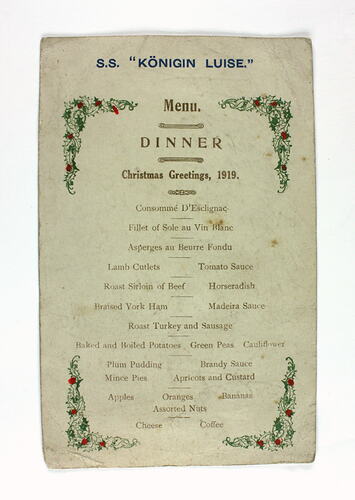 S.S. "KÖNIGIN LUISE."
Menu.
DINNER
Christmas Greetings, 1919.
Consommé D'Esclignac
Fillet of Sole au Vin Blanc
Asperges au Beurre Fondu
Lamb Cutlets Tomato Sauce
Roast Sirloin of Beef Horseradish
Braised York Ham Madeira Sauce
Roast Turkey and Sausage
Baked and Boiled Potatoes Green Peas Cauliflower
Plum Pudding Brandy Sauce
Mince Pies Apricots and Custard
Apples Oranges Bananas
Assorted Nuts
Cheese Coffee